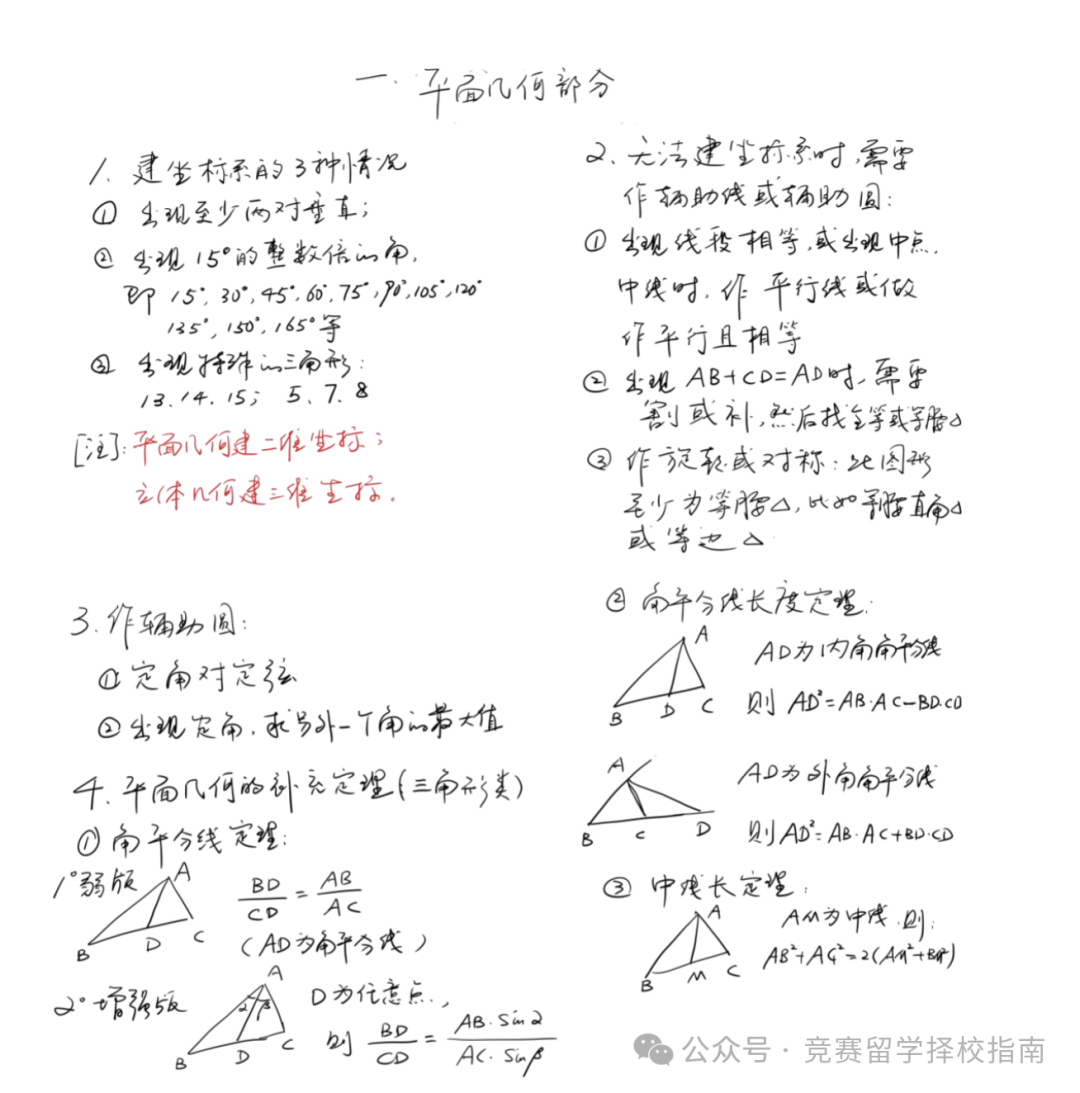 一. 平面几何部分
1. 建坐标系的3种情况
① 出现至少两对垂直;
② 出现15°的整数倍的角,
即 15°, 30°, 45°, 60°, 75°, 90°, 105°, 120°
135°, 150°, 165°等
③ 出现特殊的三角形:
13. 14. 15; 5. 7. 8
[注]: 平面几何建二维坐标;
立体几何建三维坐标.
2. 无法建坐标系时,需要
作辅助线或辅助圆:
① 出现线段相等,或出现中点.
中线时. 作 平行线或做
作平行且相等
② 出现 AB+CD=AD时, 需要
割或补,然后找全等或等腰△
③ 作旋转或对称: 此图形
至少为等腰△, 比如等腰直角△
或等边△
3. 作辅助圆:
① 定角对定弦
② 出现定角. 求另外一个角的最大值
4. 平面几何的补充定理(三角形类)
① 角平分线定理:
1°弱版
A
B
D
C
BD/CD = AB/AC
(AD为角平分线)
2°增强版
A
α
β
B
D
C
D为任意点,
则 BD/CD = AB·sinα/AC·sinβ
② 角平分线长度定理:
A
B
D
C
AD为内角角平分线
则 AD²=AB·AC-BD·CD
A
B
C
D
AD为外角角平分线
则AD²=AB·AC+BD·CD
③ 中线长定理:
A
B
M
C
AM为中线.则:
AB²+AC²=2(AM²+BM²)
公众号·竞赛留学择校指南